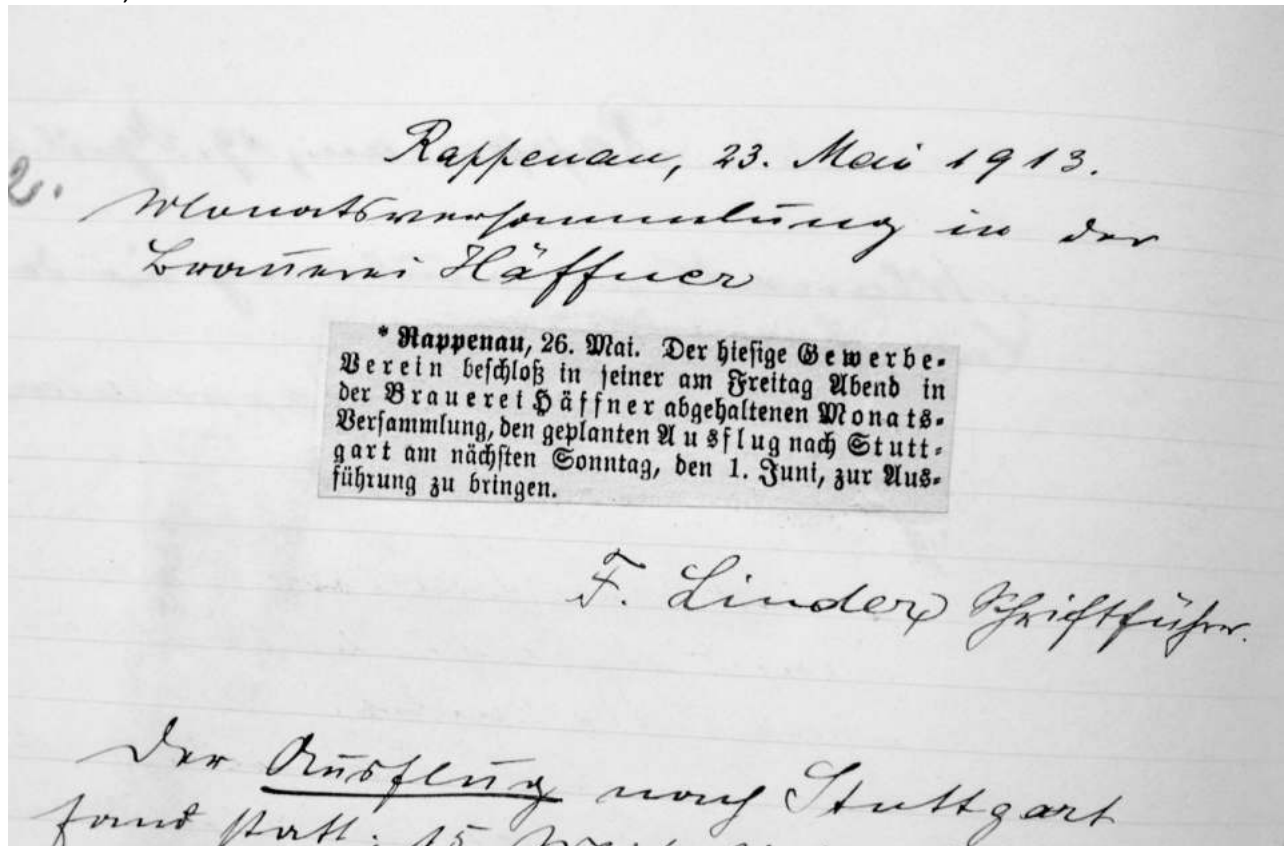 Rappenau, 23. Mai 1913.
2.
Monatsversammlung in der
Brauerei Häffner
* Rappenau, 26. Mai. Der hiesige Gewerbe-
Verein beschloß in seiner am Freitag Abend in
der Brauerei Häffner abgehaltenen Monats-
Versammlung, den geplanten Ausflug nach Stutt-
gart am nächsten Sonntag, den 1. Juni, zur Aus-
führung zu bringen.
F. Linder Schriftführer.
Der Ausflug nach Stuttgart
fand statt. 15